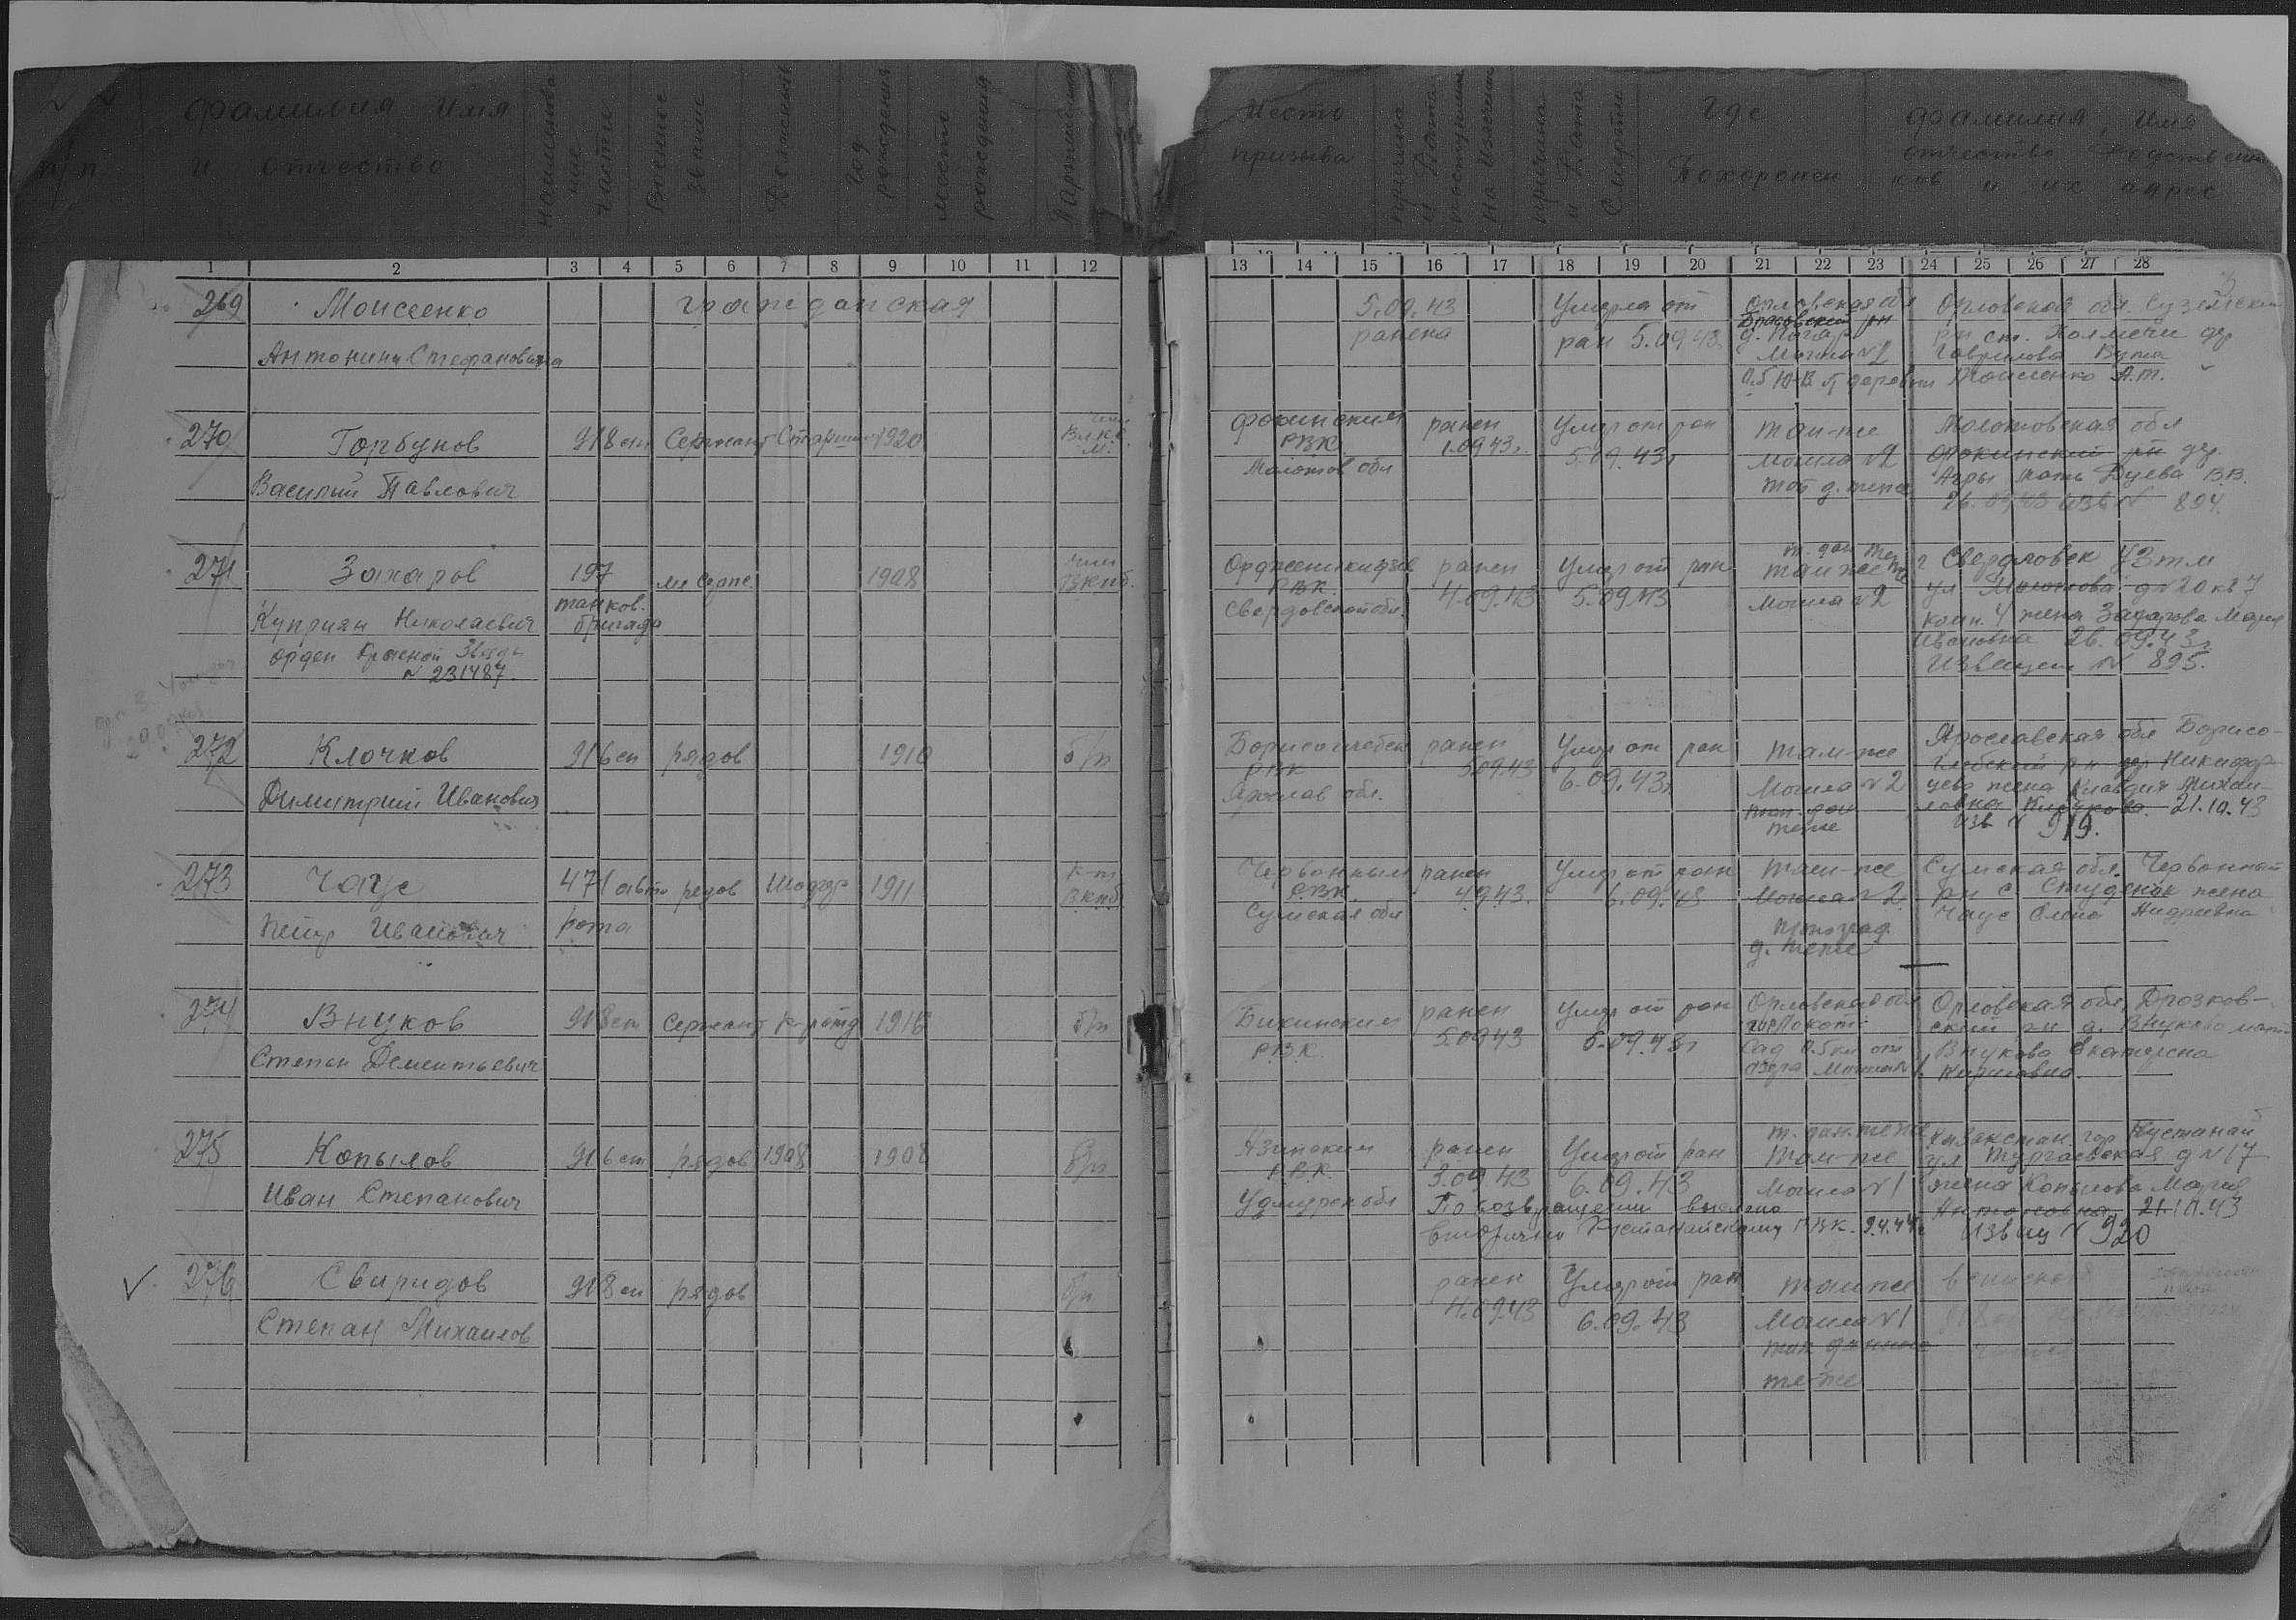 п/п
Фамилия Имя
и отчество
наименова
ние
части
Военное
звание
Должность
Год
рождения
место
рождения
Партийность
Место
призыва
причина
и Дата
поступления
на излечен
причина
и Дата
Смерти
Где
Похоронен
Фамилия, Имя
отчество Родствен
ков и их адрес
1 2 3 4 5 6 7 8 9 10 11 12
13 14 15 16 17 18 19 20 21 22 23 24 25 26 27 28
269 Моисеенко гражданская
Антонина Стефановична
5.09.43
ранена
Умерла от
ран 5.09.43.
Орловская обл
Брасовский рн
Могила №2
Орловская обл. Суземский
рн ст. Холмечи дер
Гаврилова
Моисеенко А.т.
270 Горбунов 918 сп Сержант Старшина 1920
Василий Павлович
Фокинским
РВК
Молотов обл
ранен
1.09.43г.
Умер от ран
5.09.43г
там-же
Могила №2
Молотовская обл
Фокинский рн дер.
мать Дуева В.В.
26.09.43 изв № 894.
271 Захаров 197 мл серж. 1908 член ВКПб.
танков.
бригада
Куприян Николаевич
Орден Красной Звезды
№ 231487.
Орджоникидзе
РВК
Свердловской обл.
ранен
4.09.43
Умер от ран
5.09.43
там же
Могила №2
г Свердловск УЗТМ
ул Молотова д №20 кв 7
комн. 4 жена Захарова Мария
Ивановна 26.09.43г.
Извещен № 895.
272 Клочков 916 сп рядов 1910 б/п
Димитрий Иванович
Борисоглебск
РВК
Ярослав обл.
ранен
5.09.43
Умер от ран
6.09.43г
там-же
Могила №2
теже
Ярославская обл Борисо-
глебский рн дер Никифор
цево жена Клавдия Михаи-
ловна Клочкова. 21.10.43
Изв № 919.
273 Чаус 471 авто рядов Шофер 1911 к-т ВКПб
рота
Петр Иванович
Червонным
РВК
Сумская обл
ранен
4.9.43.
Умер от ран
6.09.43
там-же
Могила №2
д. теже
Сумская обл. Червонный
рн с Студенок жена
Чаус Елена Андреевна
274 Внуков 918 сп Сержант к-р отд 1916 б/п
Степан Дементьевич
Бикинским
РВК
ранен
5.09.43
Умер от ран
5.09.43г
Орловская обл
гор Локоть
Сад 0.5 км от
озера Могила №1.
Орловская обл, Дрозков-
ский рн д. Внуково мать
Внукова Екатерина
Кириловна.
275 Копылов 916 сп рядов 1908 1908 б/п
Иван Степанович
Азинским
РВК
Удмурск обл
ранен
3.09.43
Умер от ран
6.09.43
По возвращении выслано
вторично Кустанайскому РВК. 9.4.44г
т. дан. теже
там-же
Могила №1
Казакстан гор Кустанай
ул Тургаевская д №17
жена Копылова Мария
Антоновна 21.10.43
Извещ № 920
276 Свиридов 918 сп рядов б/п
Степан Михаилов
ранен
4.09.43
Умер от ран
6.09.43
там же
Могила №1
теже